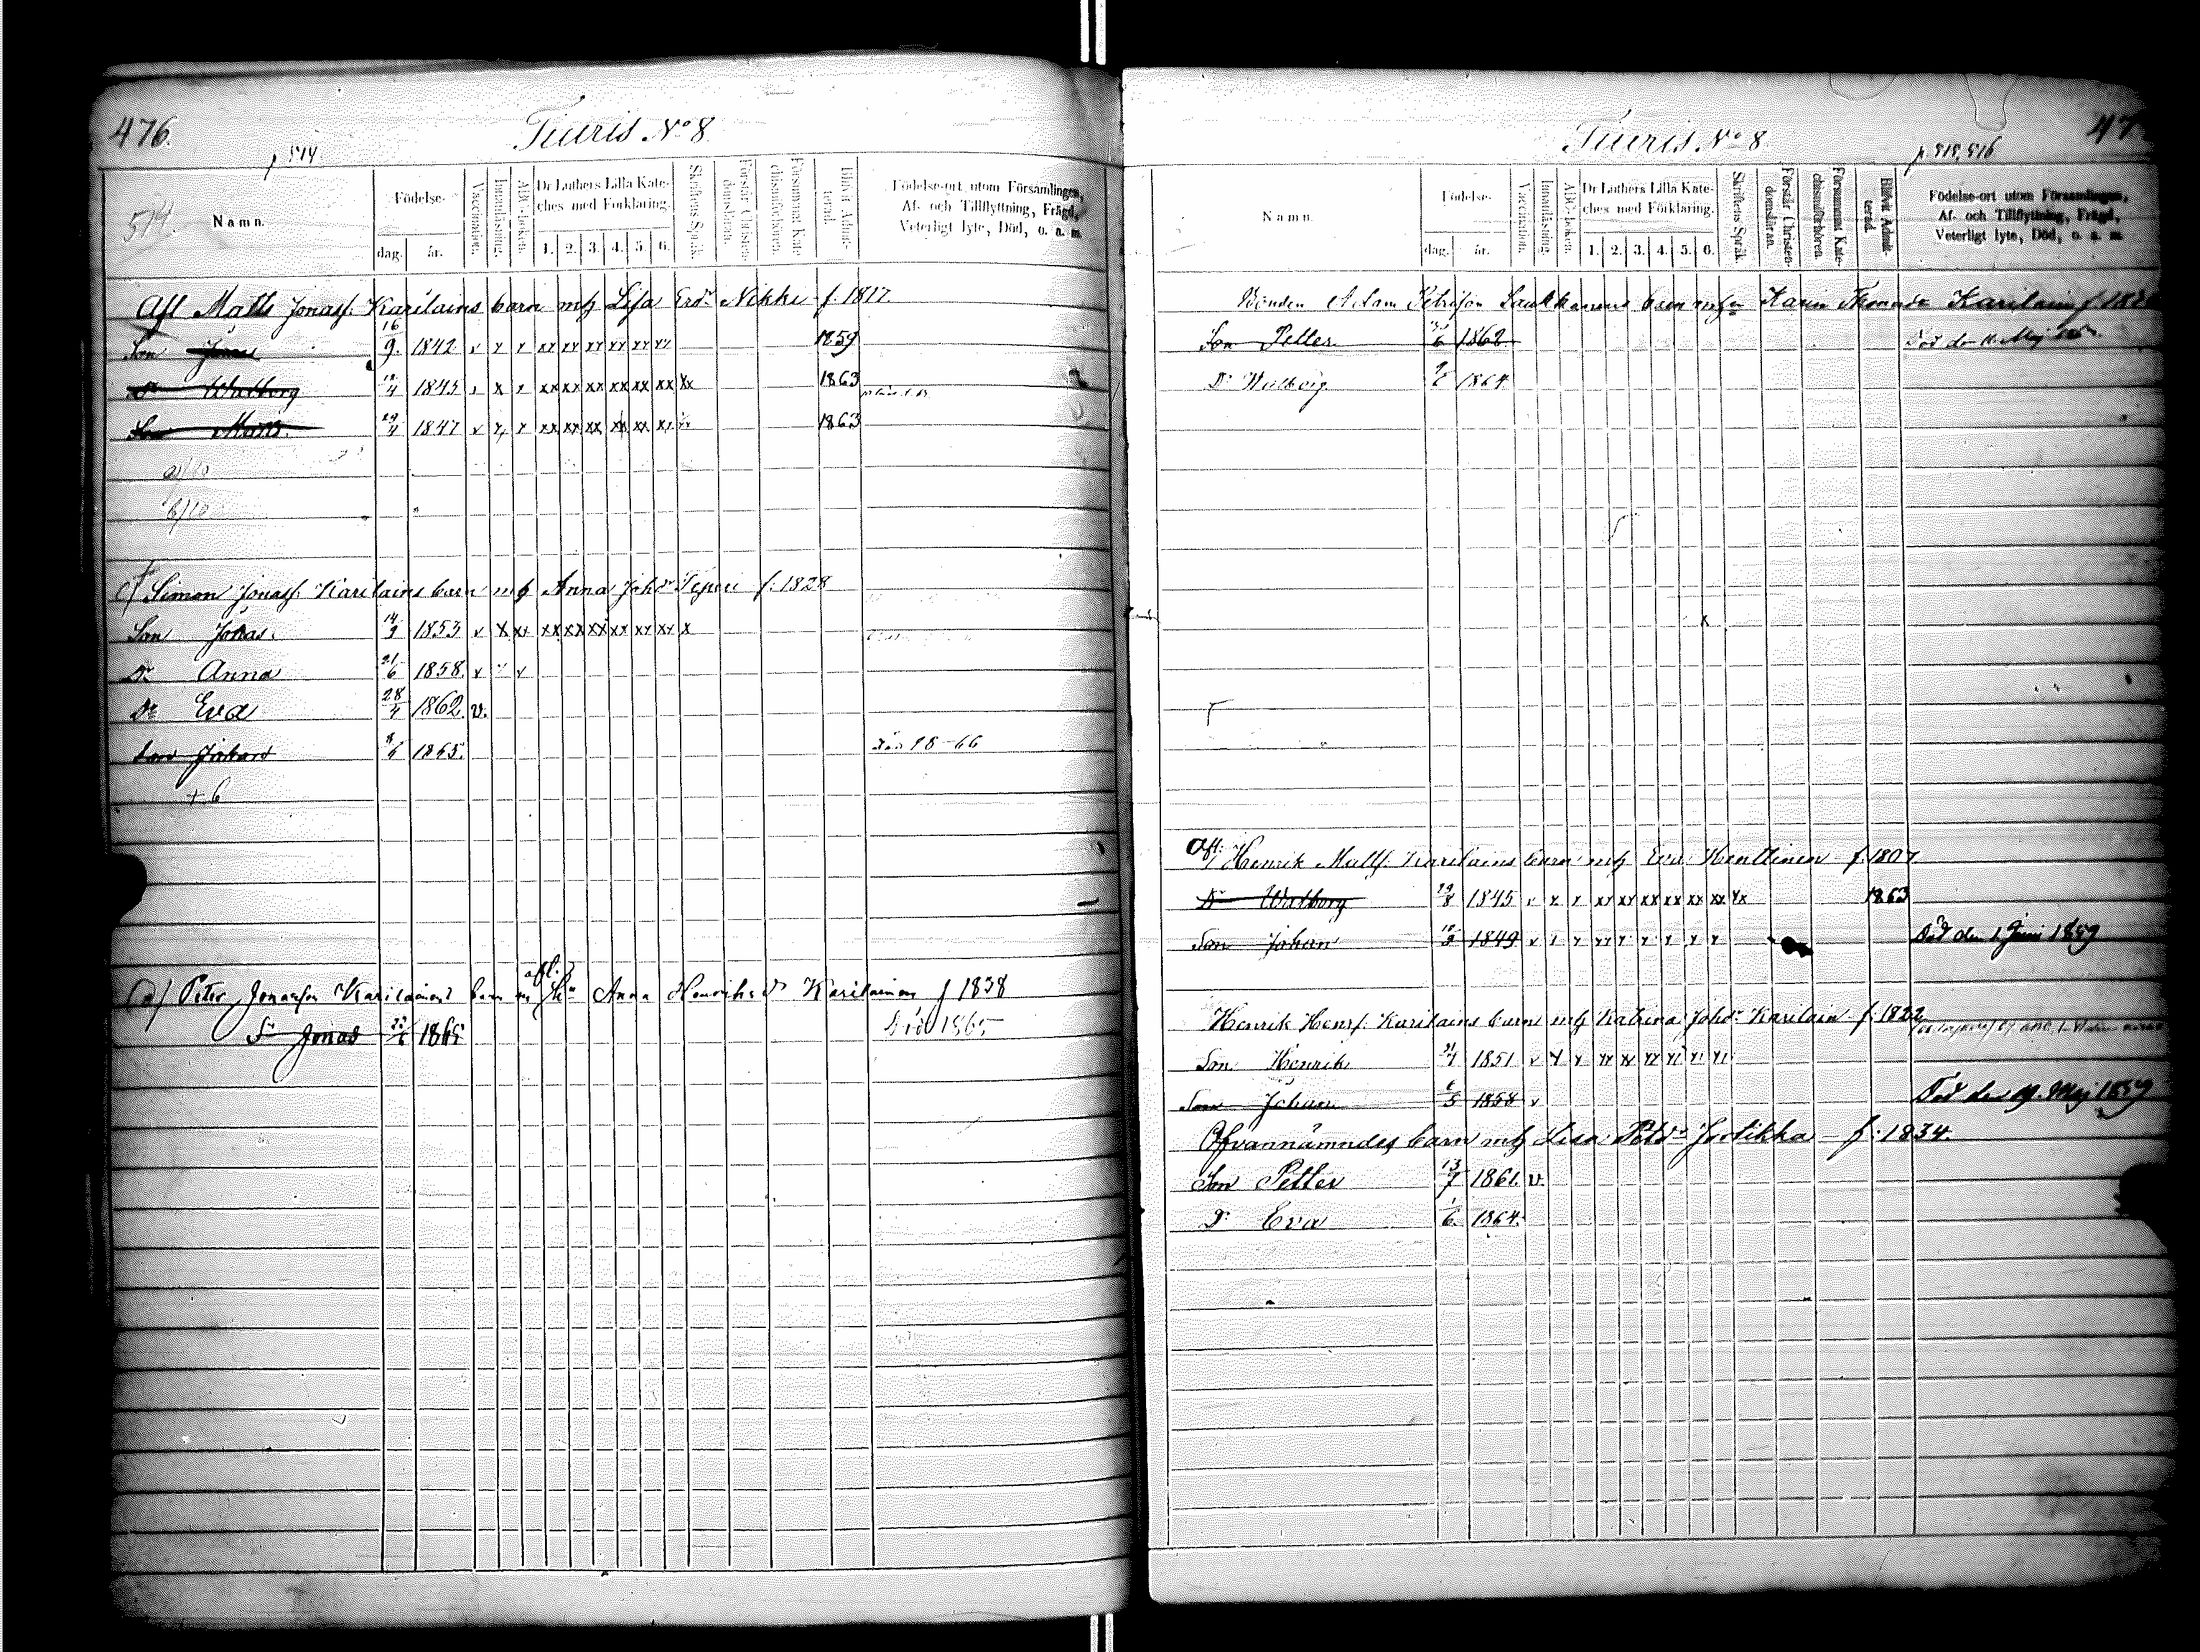 476.
Tiuris No 8
p 514.
514.
Namn.
Födelse-
dag.
år.
Vaccination.
Innanläsning.
ABC-boken.
Dr Luthers Lilla Kate-
ches med Förklaring.
1. 2. 3. 4. 5. 6.
Skriftens Språk.
Förstår Christen-
domsläran.
Försummat Kate-
chismiförhören.
Blifvit Admit-
terad.
Födelse-ort utom Församlingen,
Af- och Tillflyttning, Frägd,
Veterligt lyte, Död, o. a. m.
Afl Matts Jonass. Karilains barn mh Lisa Erds Nikki f. 1817
Son Jonas 16/9. 1842 v x x xx xx xx xx xx xx 1859
Dr Walborg 12/4 1845 v x x xx xx xx xx xx xx xx 1863
Son Matts 29/4 1847 v x x xx xx xx xx xx xx 1863
a/10
b/10
c/ Simon Jonass. Karilains barn mh Anna Johdr Teperi f. 1828
Son Jonas. 14/9 1853 v x xx xx xx xx xx xx xx x
Dr Anna 21/6 1858. v
Dr Eva 28/4 1862. v.
Son Johan 8/6 1865. död 18 66
+ 6
afl.
a/ Peter Jonasson Karilainens barn m hu Anna Henriks dr Karilainen f 1838
Sn Jonas 1865 död 1865
47
Tiuris No 8
p 515, 516
Namn.
Födelse-
dag.
år.
Vaccination.
Innanläsning.
ABC-boken.
Dr Luthers Lilla Kate-
ches med Förklaring.
1. 2. 3. 4. 5. 6.
Skriftens Språk.
Förstår Christen-
domsläran.
Försummat Kate-
chismiförhören.
Blifvit Admit-
terad.
Födelse-ort utom Församlingen,
Af- och Tillflyttning, Frägd,
Veterligt lyte, Död, o. a. m.
Bonden Adam Petrisson Laukkanens barn m hu Karin Thomasdr Karilain f. 182
Son Petter 1862 Död den 11. Maj
Dr Walborg 1864.
Afl. Henrik Matts. Karilains barn mh Eva Henttinen f. 1807
Dr Walborg 29/8 1845 v x x xx xx xx xx xx xx xx 1863
Son Johan 1849 v Död den 1 Juni 1859
Henrik Henrs. Karilains barn mh Katrina Johdr Karilain f. 1822
Son Henrik 1851 v
Son Johan 6/5 1858 v Död den 19. Maj 1859
Ofvannämndes barn mh Lisa Petdr Jortikka f. 1834.
Son Petter 13/7 1861. v.
Dr Eva 1/6. 1864.